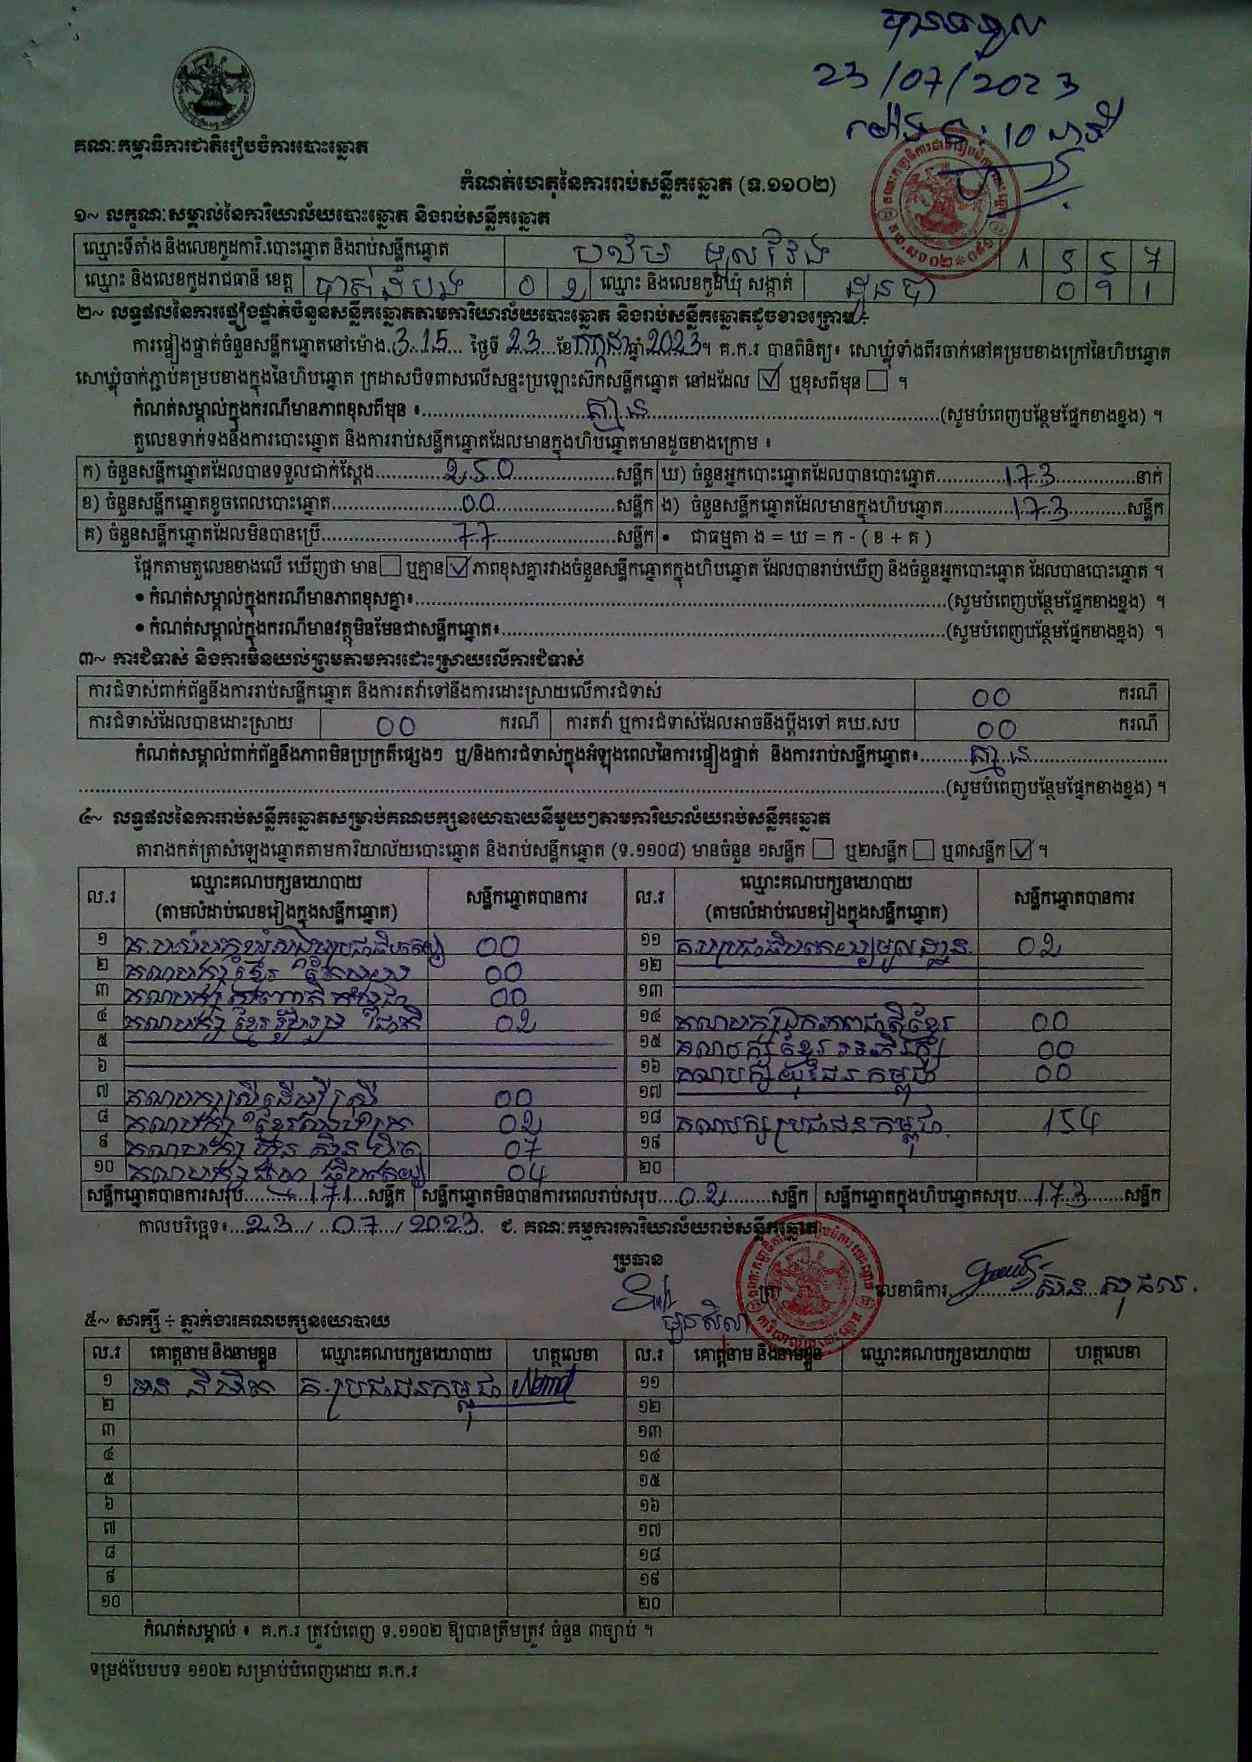 បានទទួល
23/07/2023
ម៉ោង 5:10 នាទី
គណៈកម្មាធិការជាតិរៀបចំការបោះឆ្នោត
កំណត់ហេតុនៃការរាប់សន្លឹកឆ្នោត (ទ.១១០២)
១~ លក្ខណៈសម្គាល់នៃការិយាល័យបោះឆ្នោត និងរាប់សន្លឹកឆ្នោត
ឈ្មោះទីតាំង និងលេខកូដការិ.បោះឆ្នោត និងរាប់សន្លឹកឆ្នោត 1 5 5 7
ឈ្មោះ និងលេខកូដរាជធានី ខេត្ត បាត់ដំបង 0 2 ឈ្មោះ និងលេខកូដឃុំ សង្កាត់ ដូនបា 0 9 1
២~ លទ្ធផលនៃការផ្ទៀងផ្ទាត់ចំនួនសន្លឹកឆ្នោតតាមការិយាល័យបោះឆ្នោត និងរាប់សន្លឹកឆ្នោតដូចខាងក្រោម÷
ការផ្ទៀងផ្ទាត់ចំនួនសន្លឹកឆ្នោតនៅម៉ោង 3.15 ថ្ងៃទី 23 ខែ កក្កដា ឆ្នាំ 2023។ គ.ក.រ បានពិនិត្យ៖ សោឃ្លុំទាំងពីរចាក់នៅគម្របខាងក្រៅនៃហិបឆ្នោត
សោឃ្លុំចាក់ភ្ជាប់គម្របខាងក្នុងនៃហិបឆ្នោត ក្រដាសបិទពាសលើសន្ទះប្រឡោះស៊កសន្លឹកឆ្នោត នៅដដែល ☑ ឬខុសពីមុន ☐ ។
កំណត់សម្គាល់ក្នុងករណីមានភាពខុសពីមុន ៖ គ្មាន (សូមបំពេញបន្ថែមផ្នែកខាងខ្នង) ។
តួលេខទាក់ទងនឹងការបោះឆ្នោត និងការរាប់សន្លឹកឆ្នោតដែលមានក្នុងហិបឆ្នោតមានដូចខាងក្រោម ៖
ក) ចំនួនសន្លឹកឆ្នោតដែលបានទទួលជាក់ស្តែង 250 សន្លឹក ឃ) ចំនួនអ្នកបោះឆ្នោតដែលបានបោះឆ្នោត 173 នាក់
ខ) ចំនួនសន្លឹកឆ្នោតខូចពេលបោះឆ្នោត 00 សន្លឹក ង) ចំនួនសន្លឹកឆ្នោតដែលមានក្នុងហិបឆ្នោត 173 សន្លឹក
គ) ចំនួនសន្លឹកឆ្នោតដែលមិនបានប្រើ 77 សន្លឹក • ជាធម្មតា ង = ឃ = ក - ( ខ + គ )
ផ្អែកតាមតួលេខខាងលើ ឃើញថា មាន ☐ ឬគ្មាន ☑ ភាពខុសគ្នារវាងចំនួនសន្លឹកឆ្នោតក្នុងហិបឆ្នោត ដែលបានរាប់ឃើញ និងចំនួនអ្នកបោះឆ្នោត ដែលបានបោះឆ្នោត ។
• កំណត់សម្គាល់ក្នុងករណីមានភាពខុសគ្នា៖ (សូមបំពេញបន្ថែមផ្នែកខាងខ្នង) ។
• កំណត់សម្គាល់ក្នុងករណីមានវត្ថុមិនមែនជាសន្លឹកឆ្នោត៖ (សូមបំពេញបន្ថែមផ្នែកខាងខ្នង) ។
៣~ ការជំទាស់ និងការមិនយល់ព្រមតាមការដោះស្រាយលើការជំទាស់
ការជំទាស់ពាក់ព័ន្ធនឹងការរាប់សន្លឹកឆ្នោត និងការតវ៉ាទៅនឹងការដោះស្រាយលើការជំទាស់ 00 ករណី
ការជំទាស់ដែលបានដោះស្រាយ 00 ករណី ការតវ៉ា ឬការជំទាស់ដែលអាចនឹងប្តឹងទៅ គឃ.សប 00 ករណី
កំណត់សម្គាល់ពាក់ព័ន្ធនឹងភាពមិនប្រក្រតីផ្សេងៗ ឬ/និងការជំទាស់ក្នុងអំឡុងពេលនៃការផ្ទៀងផ្ទាត់ និងការរាប់សន្លឹកឆ្នោត៖ គ្មាន
(សូមបំពេញបន្ថែមផ្នែកខាងខ្នង) ។
៤~ លទ្ធផលនៃការរាប់សន្លឹកឆ្នោតសម្រាប់គណបក្សនយោបាយនីមួយៗតាមការិយាល័យរាប់សន្លឹកឆ្នោត
តារាងកត់ត្រាសំឡេងឆ្នោតតាមការិយាល័យបោះឆ្នោត និងរាប់សន្លឹកឆ្នោត (ទ.១១០៨) មានចំនួន ១សន្លឹក ☐ ឬ២សន្លឹក ☐ ឬ៣សន្លឹក ☑ ។
ល.រ ឈ្មោះគណបក្សនយោបាយ (តាមលំដាប់លេខរៀងក្នុងសន្លឹកឆ្នោត) សន្លឹកឆ្នោតបានការ ល.រ ឈ្មោះគណបក្សនយោបាយ (តាមលំដាប់លេខរៀងក្នុងសន្លឹកឆ្នោត) សន្លឹកឆ្នោតបានការ
១ 00 ១១ គ.បប្រជាធិបតេយ្យមូលដ្ឋាន 02
២ 00 ១២
៣ 00 ១៣
៤ គណបក្សខ្មែររួបរួមជាតិ 02 ១៤ គណបក្សឯកភាពជាតិខ្មែរ 00
៥ ១៥ គណបក្សខ្មែរអភិរក្ស 00
៦ ១៦ គណបក្សយុវជនកម្ពុជា 00
៧ គណបក្សស្រីដើម្បីស្រី 00 ១៧
៨ 02 ១៨ គណបក្សប្រជាជនកម្ពុជា 154
៩ គណបក្សហ៊្វុនស៊ិនប៉ិច 07 ១៩
១០ គណបក្ស ធិបតេយ្យ 04 ២០
សន្លឹកឆ្នោតបានការសរុប 171 សន្លឹក សន្លឹកឆ្នោតមិនបានការពេលរាប់សរុប 02 សន្លឹក សន្លឹកឆ្នោតក្នុងហិបឆ្នោតសរុប 173 សន្លឹក
កាលបរិច្ឆេទ៖ 23 / 07 / 2023 ជ. គណៈកម្មការការិយាល័យរាប់សន្លឹកឆ្នោត
ប្រធាន
ត្រា លេខាធិការ
៥~ សាក្សី ÷ ភ្នាក់ងារគណបក្សនយោបាយ
ល.រ គោត្តនាម និងនាមខ្លួន ឈ្មោះគណបក្សនយោបាយ ហត្ថលេខា ល.រ គោត្តនាម និងនាមខ្លួន ឈ្មោះគណបក្សនយោបាយ ហត្ថលេខា
១ គ.ប្រជាជនកម្ពុជា ១១
២ ១២
៣ ១៣
៤ ១៤
៥ ១៥
៦ ១៦
៧ ១៧
៨ ១៨
៩ ១៩
១០ ២០
កំណត់សម្គាល់ ៖ គ.ក.រ ត្រូវបំពេញ ទ.១១០២ ឱ្យបានត្រឹមត្រូវ ចំនួន ៣ច្បាប់ ។
ទម្រង់បែបបទ ១១០២ សម្រាប់បំពេញដោយ គ.ក.រ